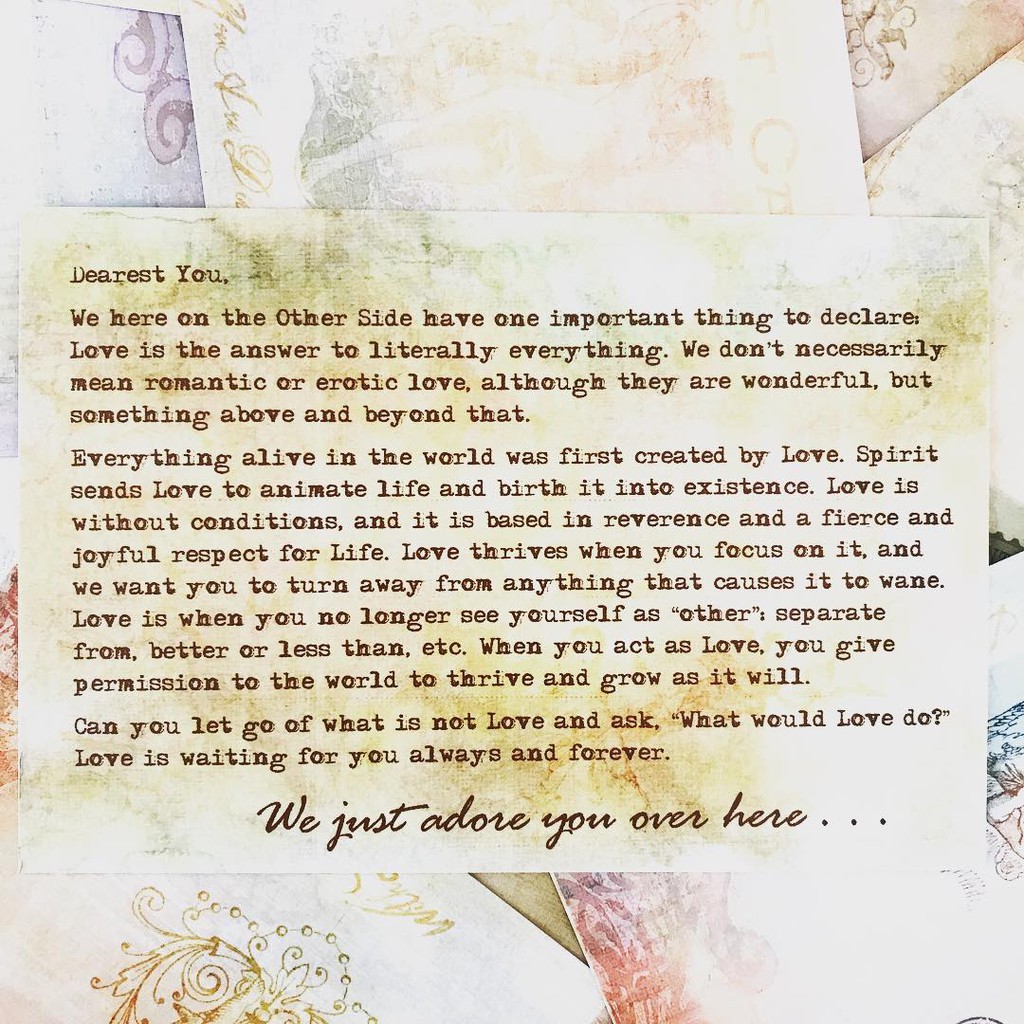 Dearest You,
We here on the Other Side have one important thing to declare:
Love is the answer to literally everything. We don't necessarily
mean romantic or erotic love, although they are wonderful, but
something above and beyond that.
Everything alive in the world was first created by Love. Spirit
sends Love to animate life and birth it into existence. Love is
without conditions, and it is based in reverence and a fierce and
joyful respect for Life. Love thrives when you focus on it, and
we want you to turn away from anything that causes it to wane.
Love is when you no longer see yourself as "other": separate
from, better or less than, etc. When you act as Love, you give
permission to the world to thrive and grow as it will.
Can you let go of what is not Love and ask, "What would Love do?"
Love is waiting for you always and forever.
We just adore you over here . . .